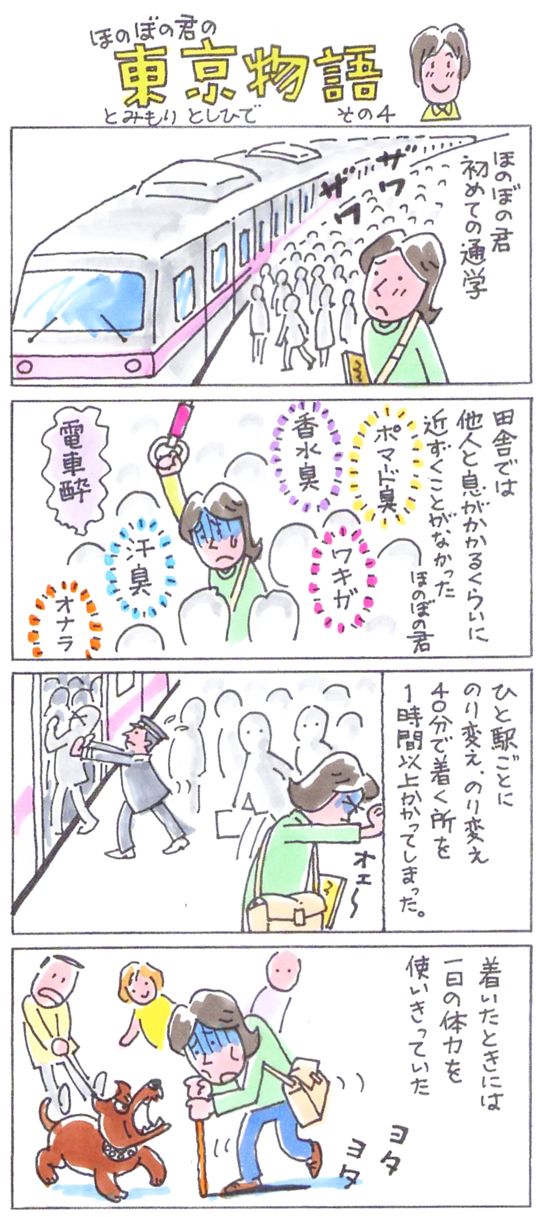 ほのぼの君の
東京物語
とみもり としひで
その4
ほのぼの君
初めての通学
ザワ
ザワ
田舎では
他人と息がかかるくらいに
近ずくことがなかった
ほのぼの君
ポマード臭
香水臭
電車酔
汗臭
ワキガ
オナラ
ひと駅ごとに
のり変え、のり変え
40分で着く所を
1時間以上かかってしまった。
オエ〜
着いたときには
一日の体力を
使いきっていた
ヨタ
ヨタ